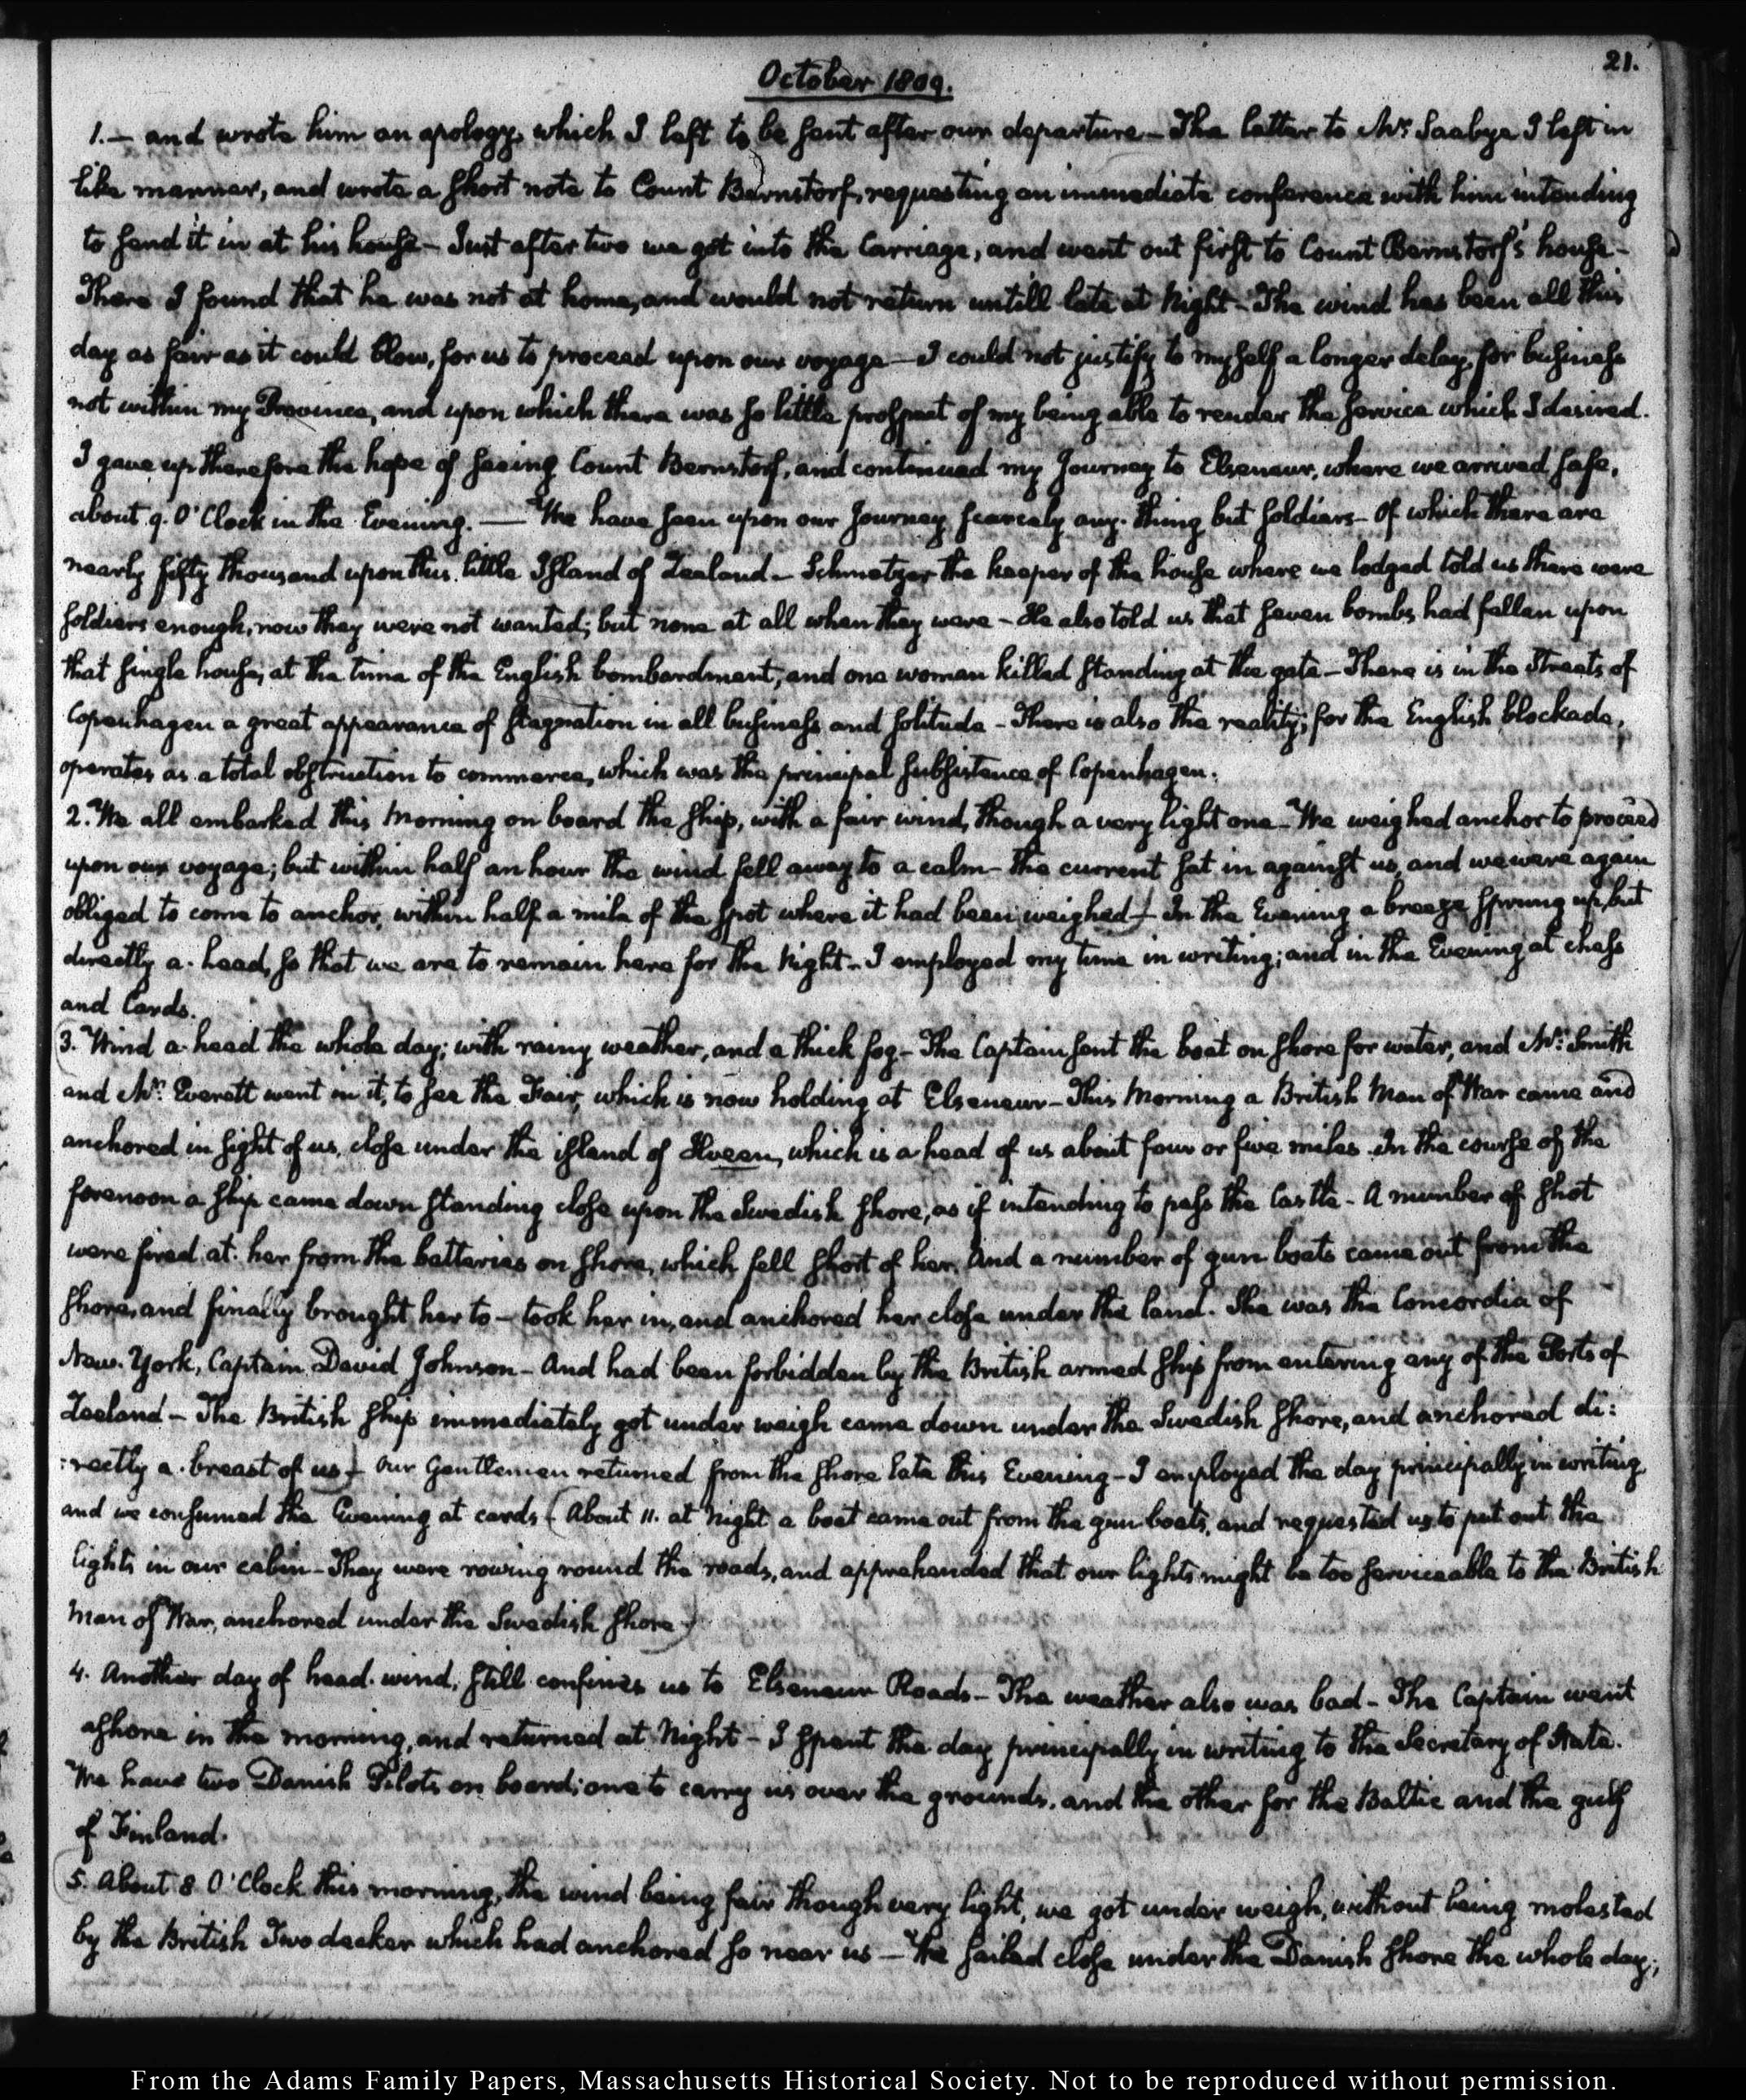 21.
October 1809.
1.— and wrote him an apology, which I left to be sent after our departure — The letter to Mr. Saabye I left in
like manner, and wrote a short note to Count Bernstorf, requesting an immediate conference with him intending
to send it in at his house — Just after two we got into the Carriage, and went out first to Count Bernstorf's house —
There I found that he was not at home, and would not return untill late at Night — The wind has been all this
day as fair as it could blow, for us to proceed upon our voyage — I could not justify to myself a longer delay, for business
not within my Province, and upon which there was so little prospect of my being able to render the service which I desired.
I gave up therefore the hope of seeing Count Bernstorf, and continued my Journey to Elseneur, where we arrived safe,
about 9. O'Clock in the Evening. — We have seen upon our Journey scarcely any thing but soldiers — Of which there are
nearly fifty thousand upon this little Island of Zealand — Schmetzer the keeper of the house where we lodged told us there were
soldiers enough, now they were not wanted; but none at all when they were — He also told us that seven bombs had fallen upon
that single house, at the time of the English bombardment, and one woman killed standing at the gate — There is in the Streets of
Copenhagen a great appearance of stagnation in all business and solitude — There is also the reality; for the English blockade,
operates as a total obstruction to commerce, which was the principal subsistence of Copenhagen.
2. We all embarked this Morning on board the ship, with a fair wind, though a very light one — We weighed anchor to proceed
upon our voyage; but within half an hour the wind fell away to a calm — the current set in against us, and we were again
obliged to come to anchor, within half a mile of the spot where it had been weighed — In the Evening a breeze sprung up, but
directly a-head, so that we are to remain here for the Night — I employed my time in writing; and in the Evening at chess
and Cards.
3. Wind a-head the whole day; with rainy weather, and a thick fog — The Captain sent the boat on shore for water, and Mr. Smith
and Mr. Everett went in it, to see the Fair, which is now holding at Elseneur — This Morning a British Man of War came and
anchored in sight of us, close under the island of Hveen, which is a head of us about four or five miles. In the course of the
forenoon a ship came down standing close upon the Swedish shore, as if intending to pass the Castle — A number of shot
were fired at her from the batteries on shore, which fell short of her. And a number of gun boats came out from the
shore, and finally brought her to — took her in, and anchored her close under the land. She was the Concordia of
New-York, Captain David Johnson — And had been forbidden by the British armed ship from entering any of the Ports of
Zeeland — The British ship immediately got under weigh came down under the Swedish shore, and anchored di:
:rectly a-breast of us) — Our Gentlemen returned from the shore late this Evening — I employed the day principally in writing,
and we consumed the Evening at cards (About 11. at Night a boat came out from the gun boats, and requested us to put out the
lights in our cabin — They were rowing round the roads, and apprehended that our lights might be too serviceable to the British
Man of War, anchored under the Swedish shore)
4. Another day of head-wind, still confines us to Elseneur Roads — The weather also was bad — The Captain went
ashore in the morning, and returned at Night — I spent the day principally in writing to the Secretary of State.
We have two Danish Pilots on board; one to carry us over the grounds, and the other for the Baltic and the gulf
of Finland.
5. About 8 O'Clock this morning, the wind being fair though very light, we got under weigh, without being molested
by the British Two decker which had anchored so near us — We sailed close under the Danish shore the whole day;
From the Adams Family Papers, Massachusetts Historical Society. Not to be reproduced without permission.